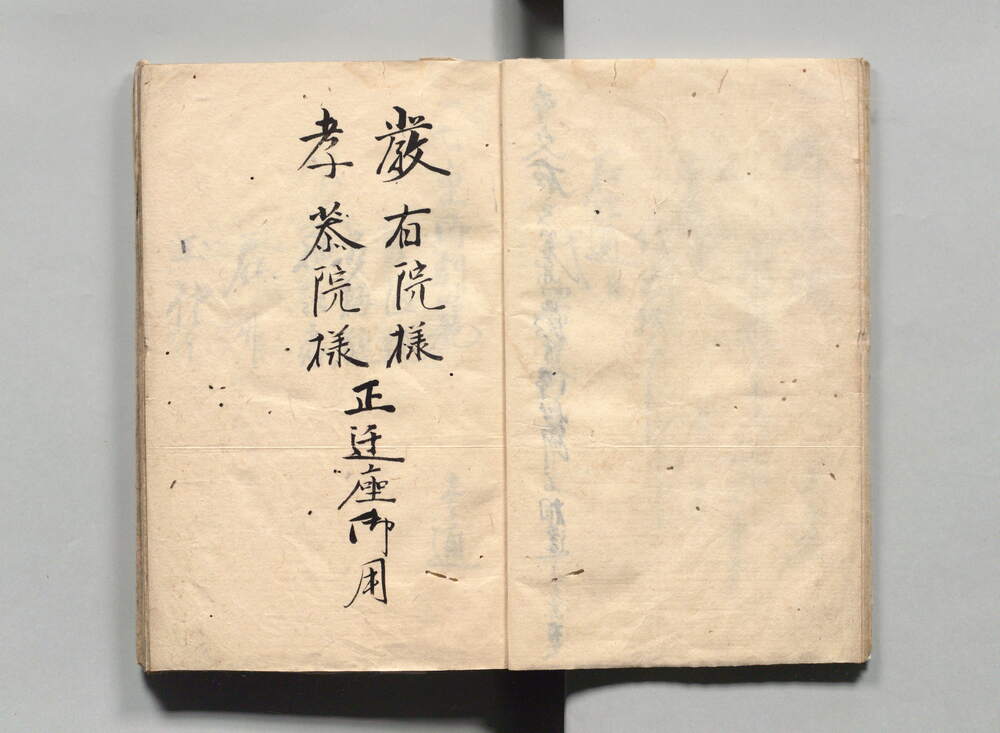 嚴有院様
孝恭院様
正迁座御用